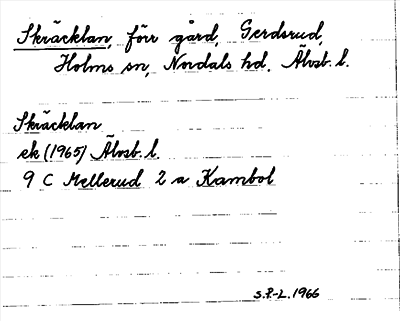 Skräcklan, förr gård, Gerdsrud,
Holms sn, Nordals hd. Älvsb. l.
Skräcklan
ek (1965) Älvsb. l.
9 C Mellerud 2 a Kambol
S.P-L. 1966